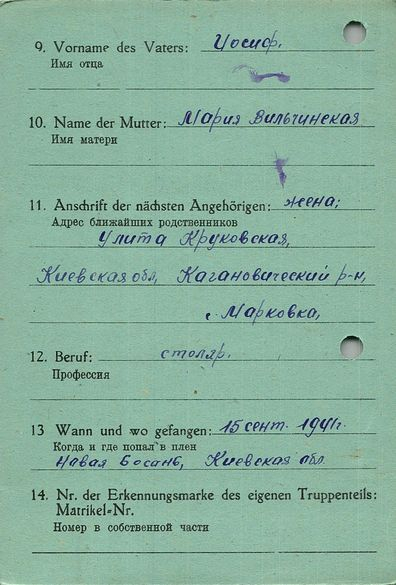 9. Vorname des Vaters: Иосиф.
Имя отца
10. Name der Mutter: Мария Вильчинская
Имя матери
11. Anschrift der nächsten Angehörigen: жена;
Адрес ближайших родственников
Улита Круковская,
Киевская обл, Кагановический р-н,
с. Марковка,
12. Beruf: столяр.
Профессия
13 Wann und wo gefangen: 15 сент. 1941г.
Когда и где попал в плен
Новая Босань, Киевская обл.
14. Nr. der Erkennungsmarke des eigenen Truppenteils:
Matrikel-Nr.
Номер в собственной части